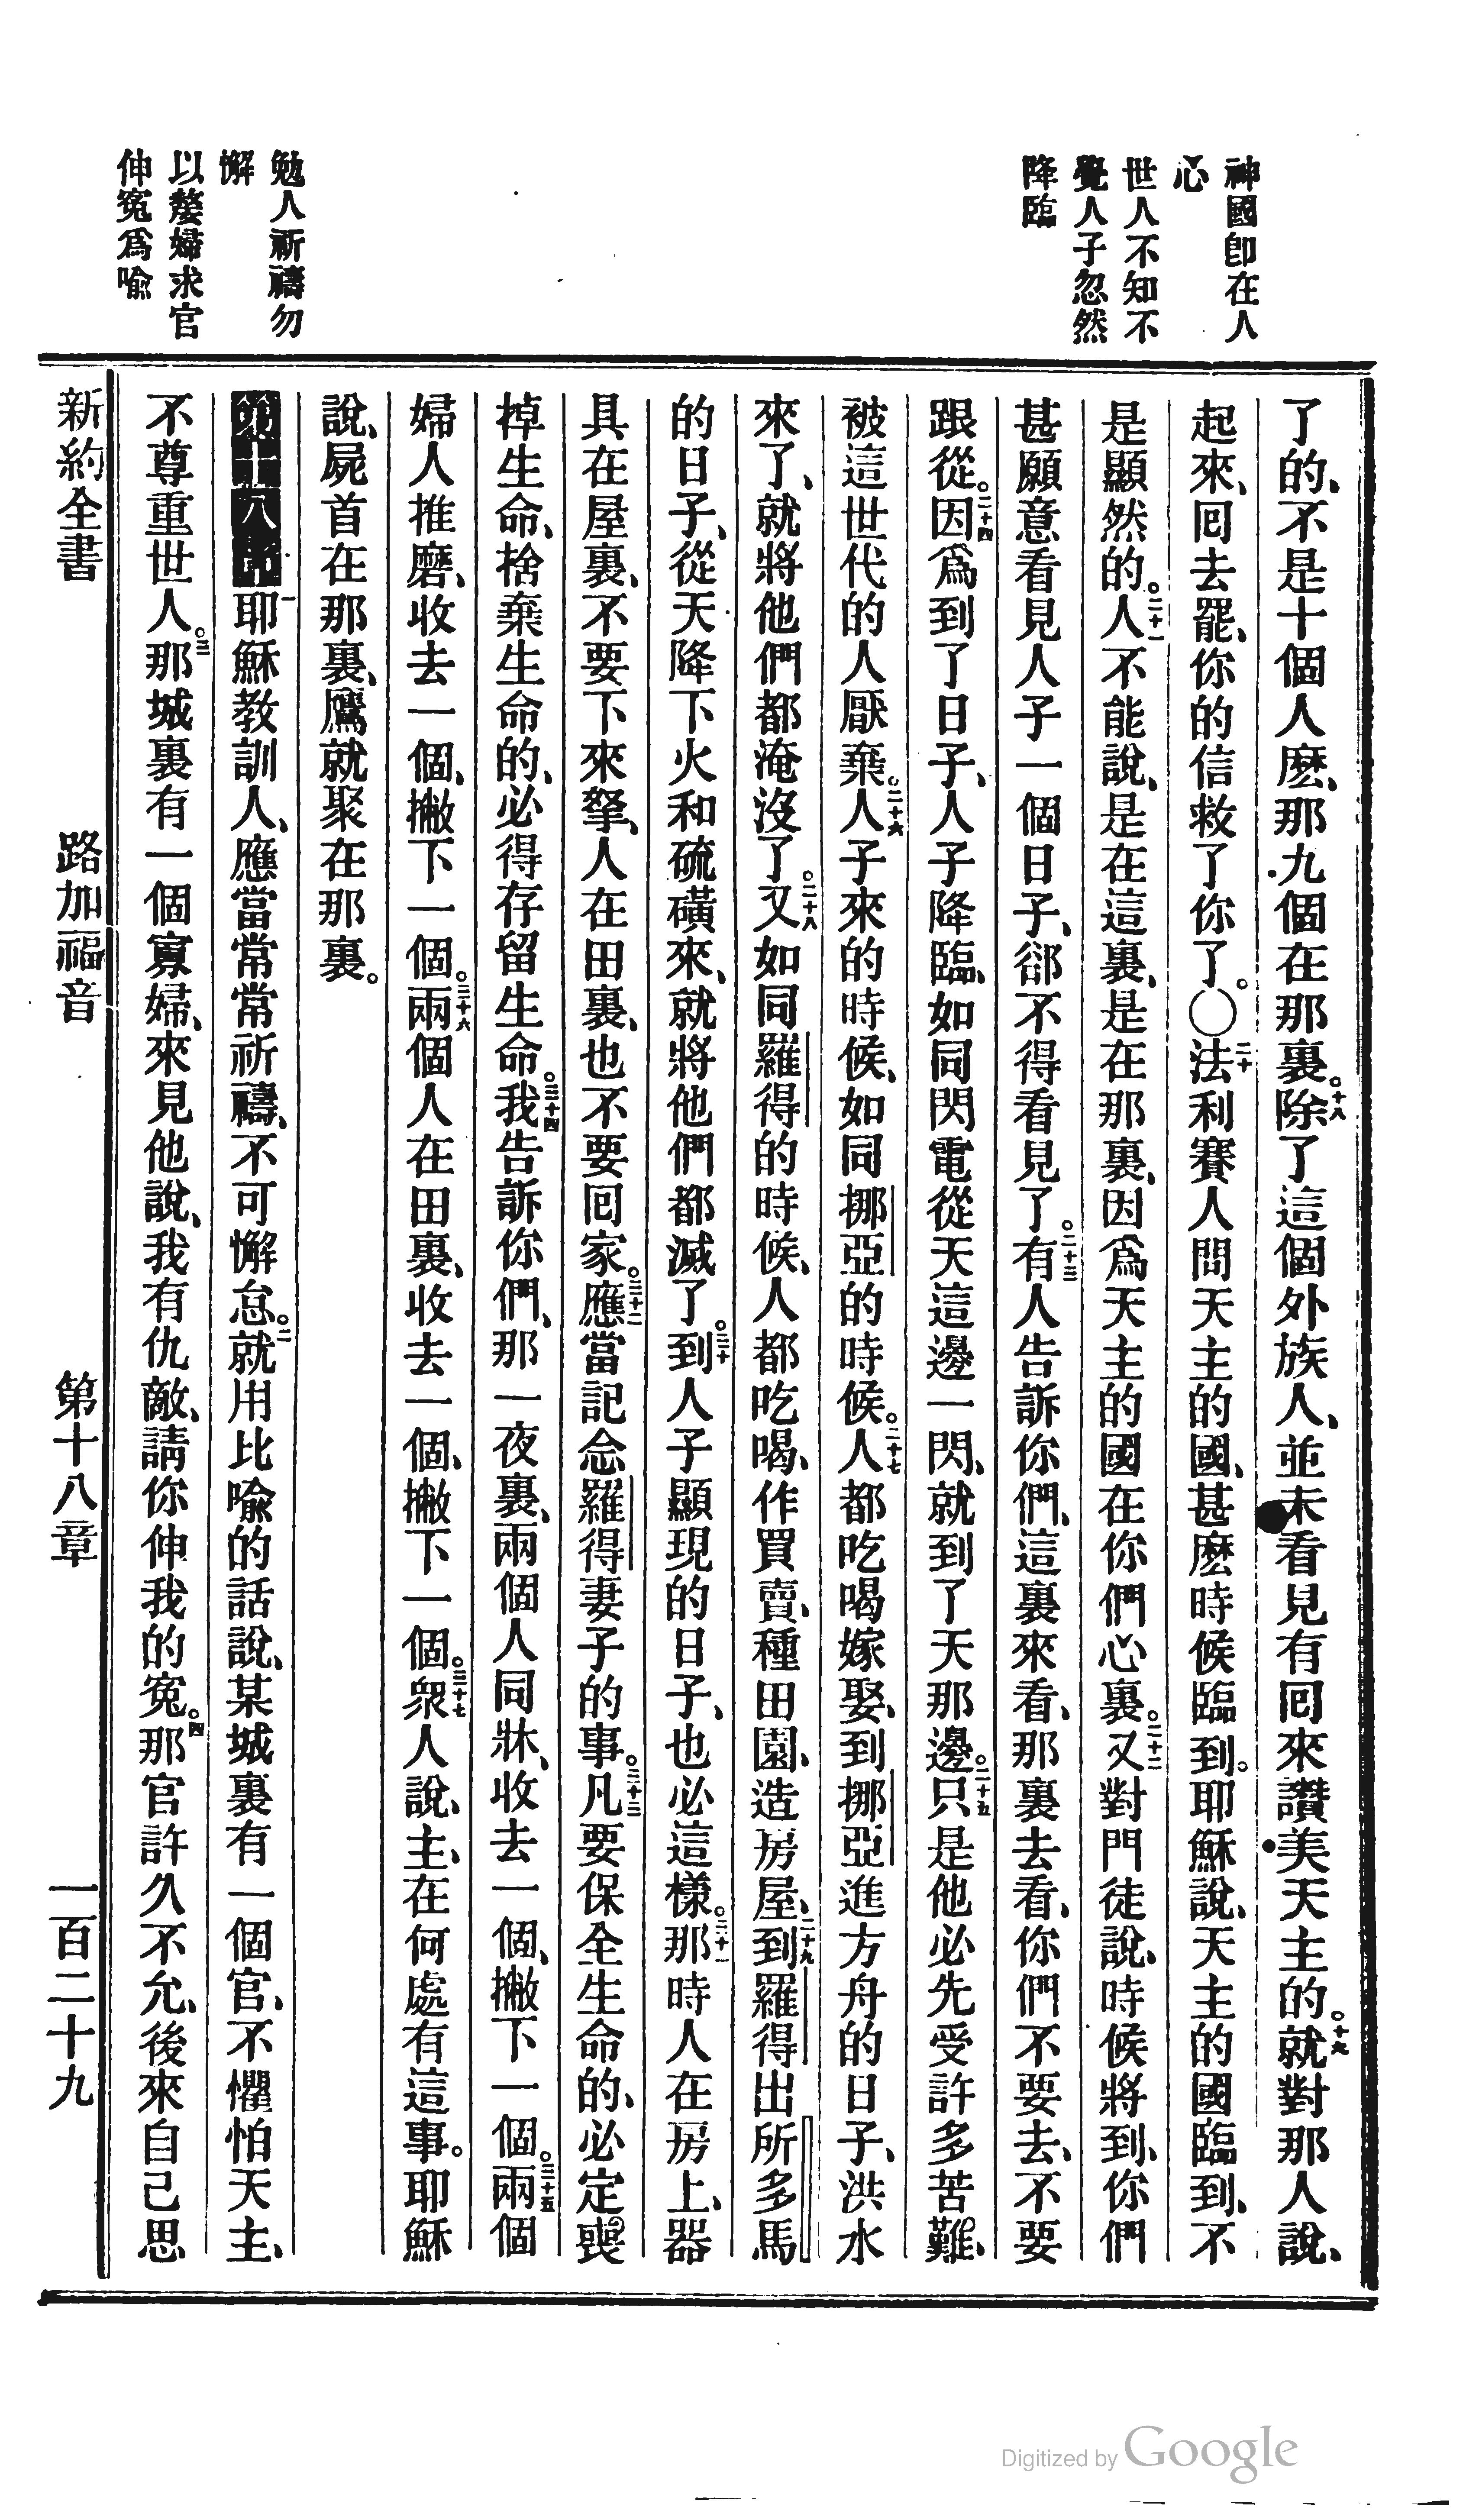 神國卽在人
心
世人不知不
覺人子忽然
降臨
勉人祈禱勿
懈
以嫠婦求官
伸寃爲喩
了的、不是十個人麽、那九個在那裏。十八除了這個外族人、並未看見有囘來讚美天主的。十九就對那人說、
起來、囘去罷、你的信救了你了。〇二十法利賽人問天主的國、甚麽時候臨到。耶穌說、天主的國臨到、不
是顯然的。二十一人不能說、是在這裏、是在那裏、因爲天主的國在你們心裏。二十二又對門徒說、時候將到、你們
甚願意看見人子一個日子、郤不得看見了。二十三有人告訴你們、這裏來看、那裏去看、你們不要去、不要
跟從。二十四因爲到了日子、人子降臨、如同閃電從天這邊一閃、就到了天那邊。二十五只是他必先受許多苦難、
被這世代的人厭棄。二十六人子來的時候、如同挪亞的時候。二十七人都吃喝嫁娶、到挪亞進方舟的日子、洪水
來了、就將他們都淹沒了。二十八又如同羅得的時候、人都吃喝、作買賣、種田園、造房屋、二十九到羅得出所多馬
的日子、從天降下火和硫磺來、就將他們都滅了。三十到人子顯現的日子、也必這樣。三十一那時人在房上、器
具在屋裏、不要下來拏、人在田裏、也不要囘家。三十二應當記念羅得妻子的事。三十三凡要保全生命的、必定喪
掉生命、捨棄生命的、必得存留生命。三十四我告訴你們、那一夜裏、兩個人同牀、收去一個、撇下一個。三十五兩個
婦人推磨、收去一個、撇下一個。三十六兩個人在田裏、收去一個、撇下一個。三十七衆人說、主、在何處有這事。耶穌
說、屍首在那裏、鷹就聚在那裏。
第十八章一耶穌教訓人、應當常常祈禱、不可懈怠。二就用比喩的話說、某城裏有一個官、不懼怕天主、
不尊重世人。三那城裏有一個寡婦、來見他說、我有仇敵、請你伸我的寃。四那官許久不允、後來自己思
新約全書 路加福音 第十八章 一百二十九
Digitized by Google